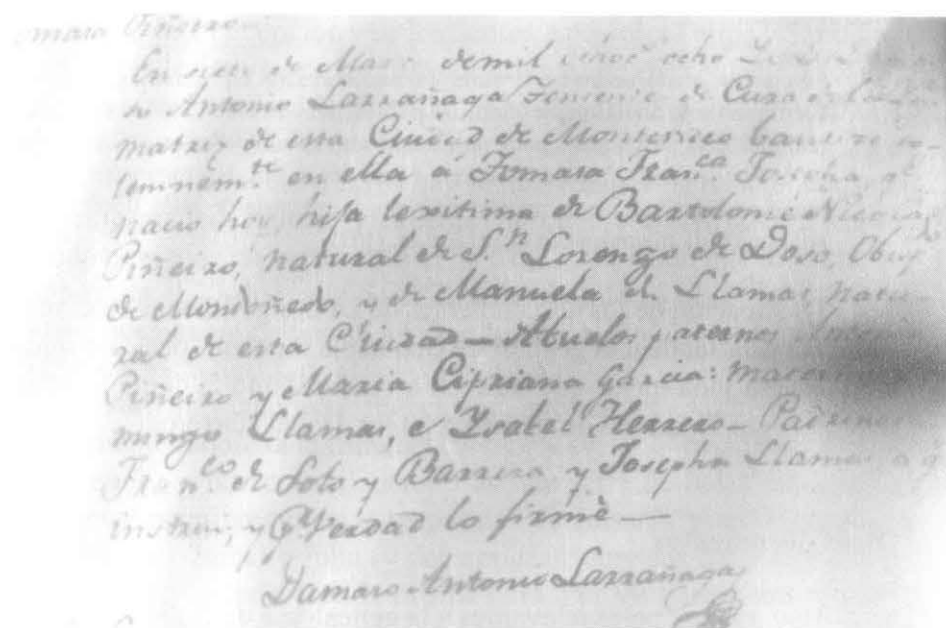 Piñeiro
En siete de Marzo de mil ochoc.s ocho
Antonio Larrañaga Teniente de Cura de la
matriz de esta Ciudad de Montevideo bautizó so-
lemnem.te en ella á Tomasa Fran.ca Josepha, q.e
nacio hoy, hija lexitima de Bartolome Nicolas
Piñeiro, natural de S.n Lorenzo de Doso, Obisp.do
de Mondoñedo, y de Manuela de Llamas, natu-
ral de esta Ciudad — Abuelos paternos Antonio
Piñeiro y Maria Cipriana Garcia: maternos
mingo Llamas, e Ysabel Herrero — Padrinos
Fran.co de Soto y Barrera y Josepha Llamas a q.
instrui; y P.r Verdad lo firmè —
Damaso Antonio Larrañaga